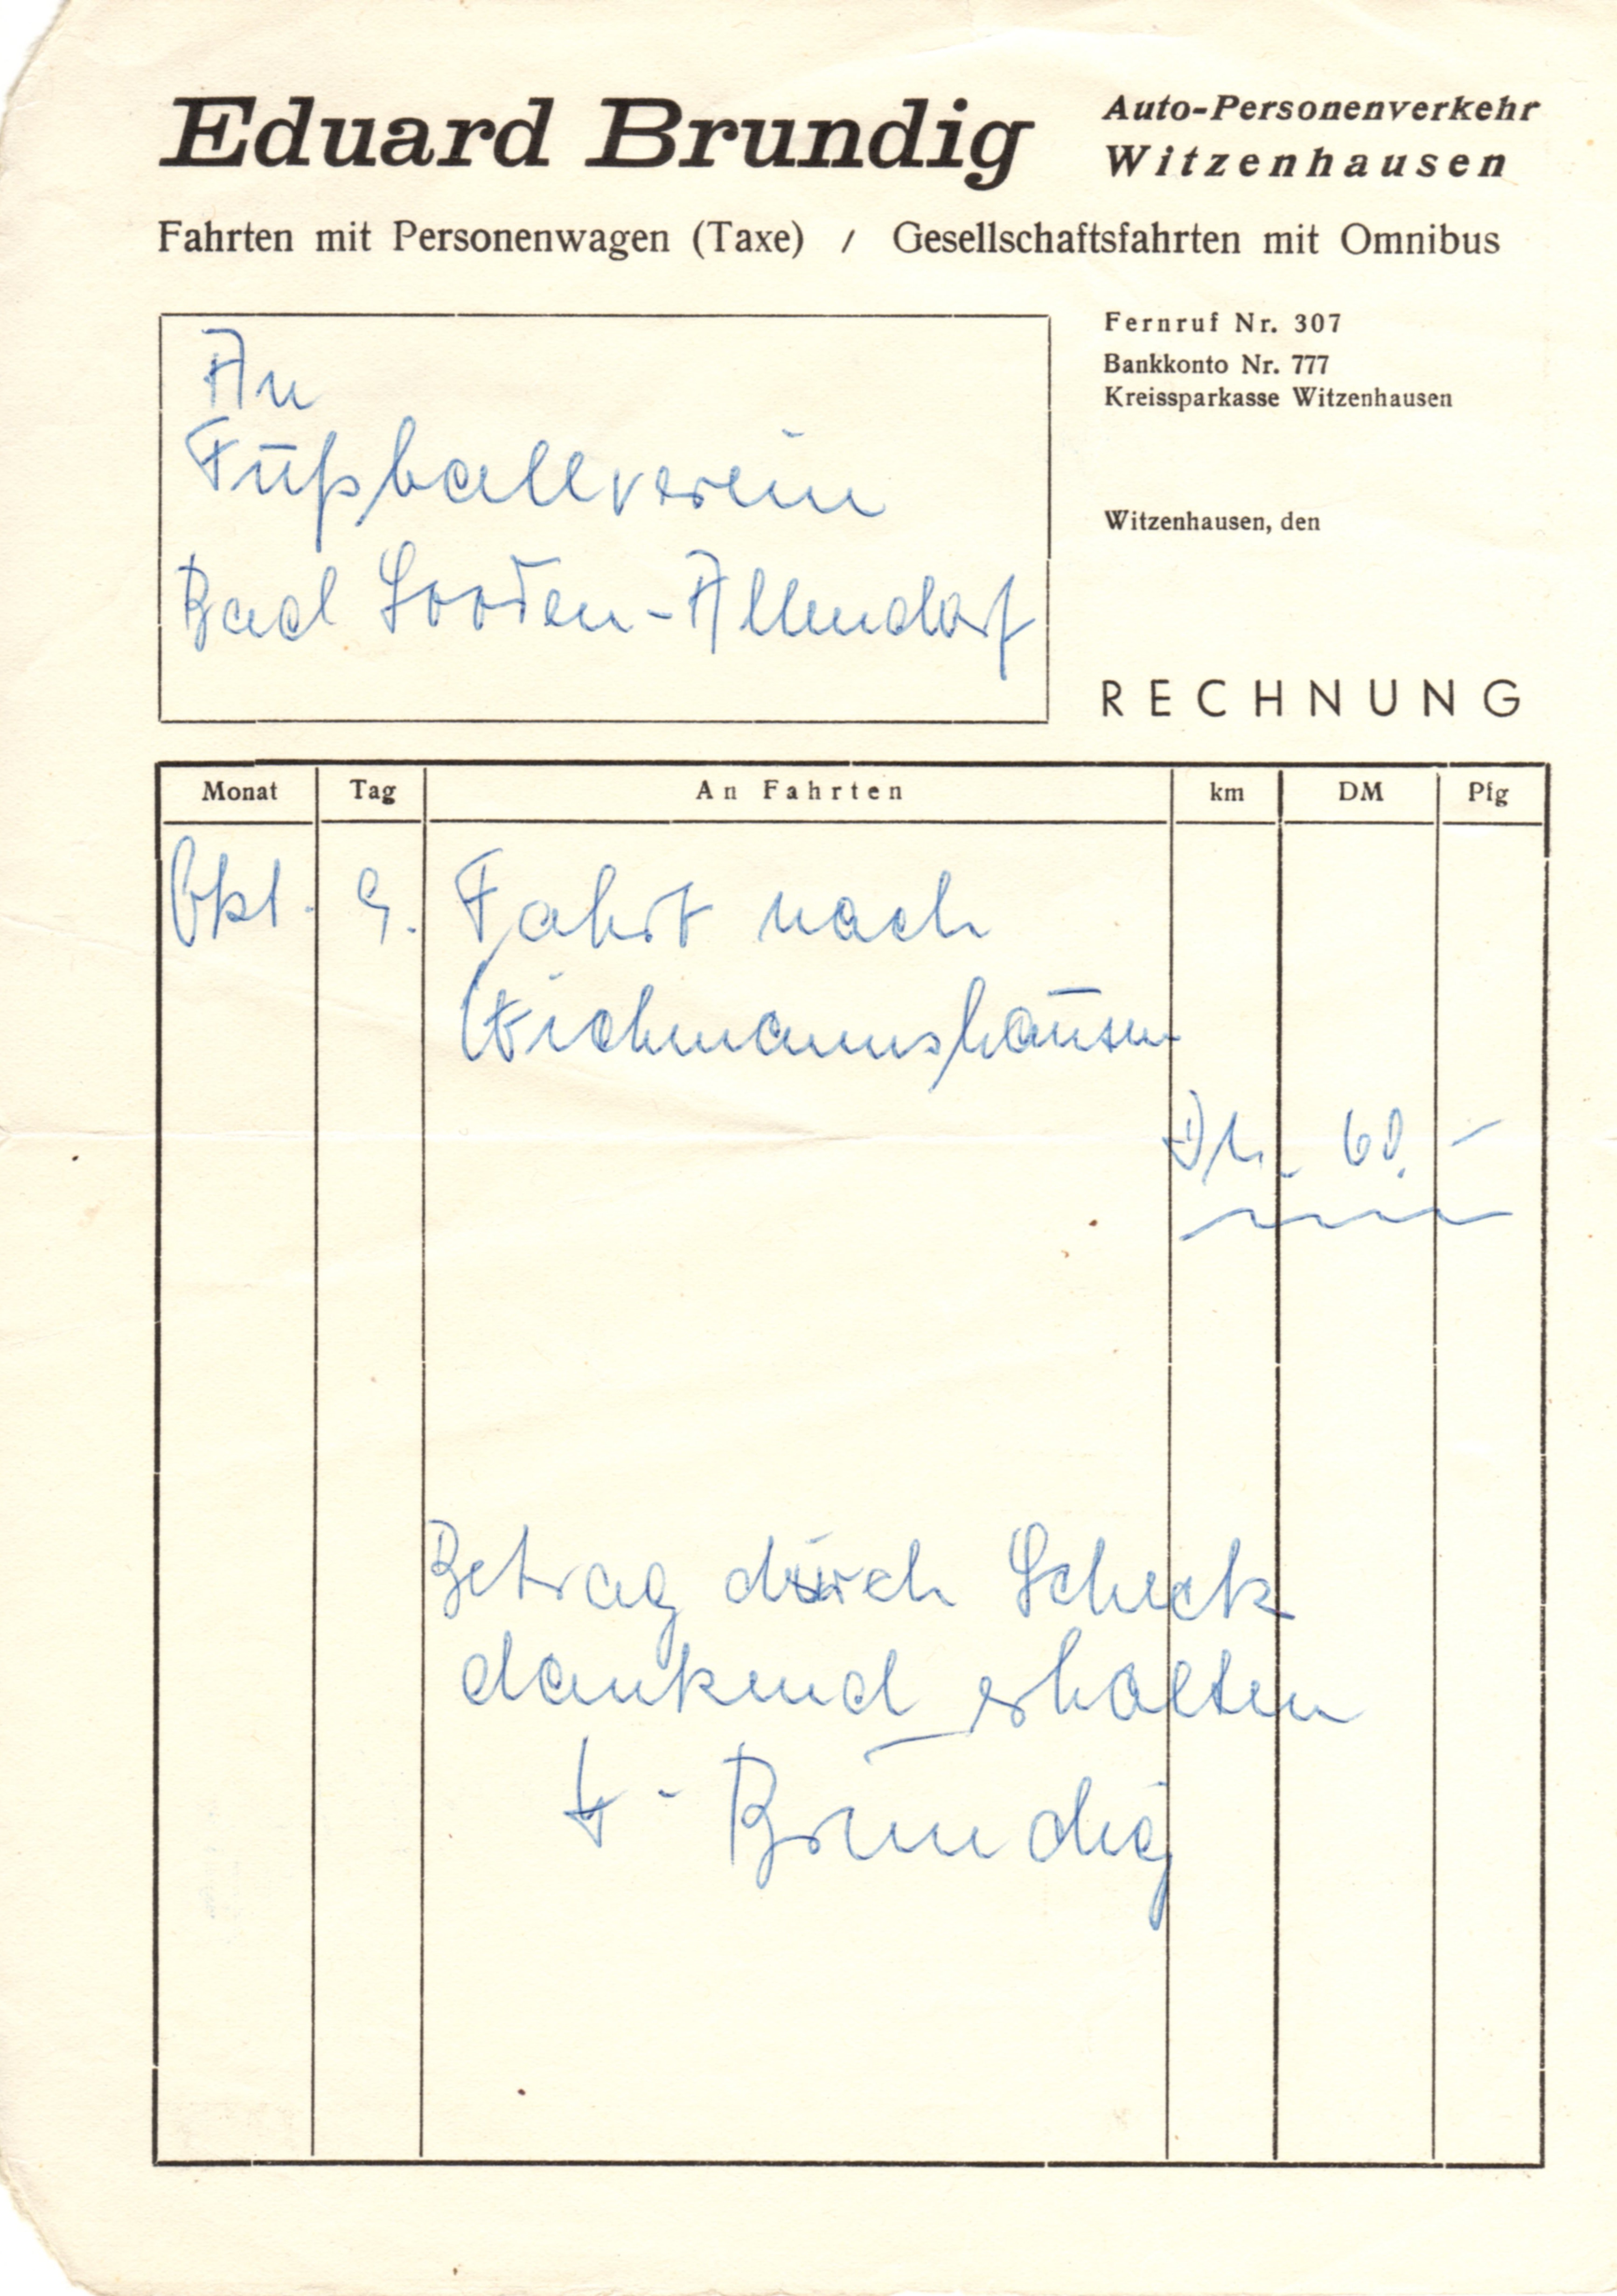 Eduard Brundig
Auto-Personenverkehr
Witzenhausen
Fahrten mit Personenwagen (Taxe) / Gesellschaftsfahrten mit Omnibus
An
Fußballverein
Bad Sooden-Allendorf
Fernruf Nr. 307
Bankkonto Nr. 777
Kreissparkasse Witzenhausen
Witzenhausen, den
RECHNUNG
Monat Tag An Fahrten km DM Pfg
Okt. 9. Fahrt nach
Wichmannshausen
DM 60.-
Betrag durch Scheck
dankend erhalten
Brundig